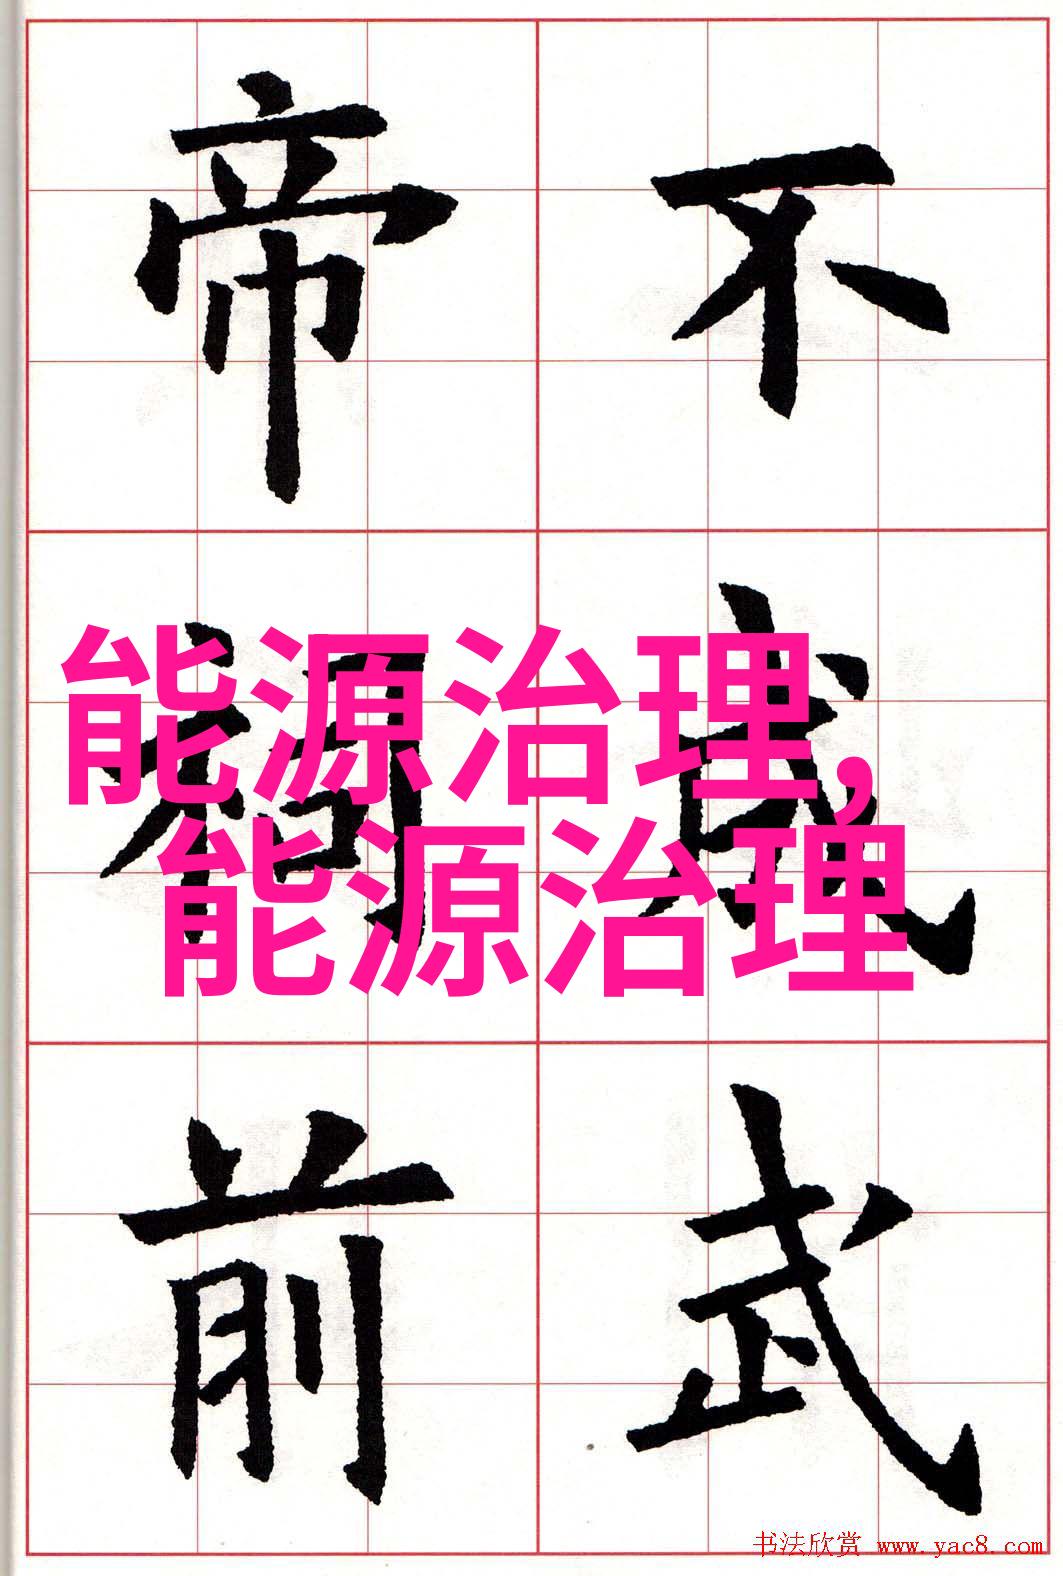 不武
帝祠前
能源治理,
能源治理
书法欣赏 www.yac8.com